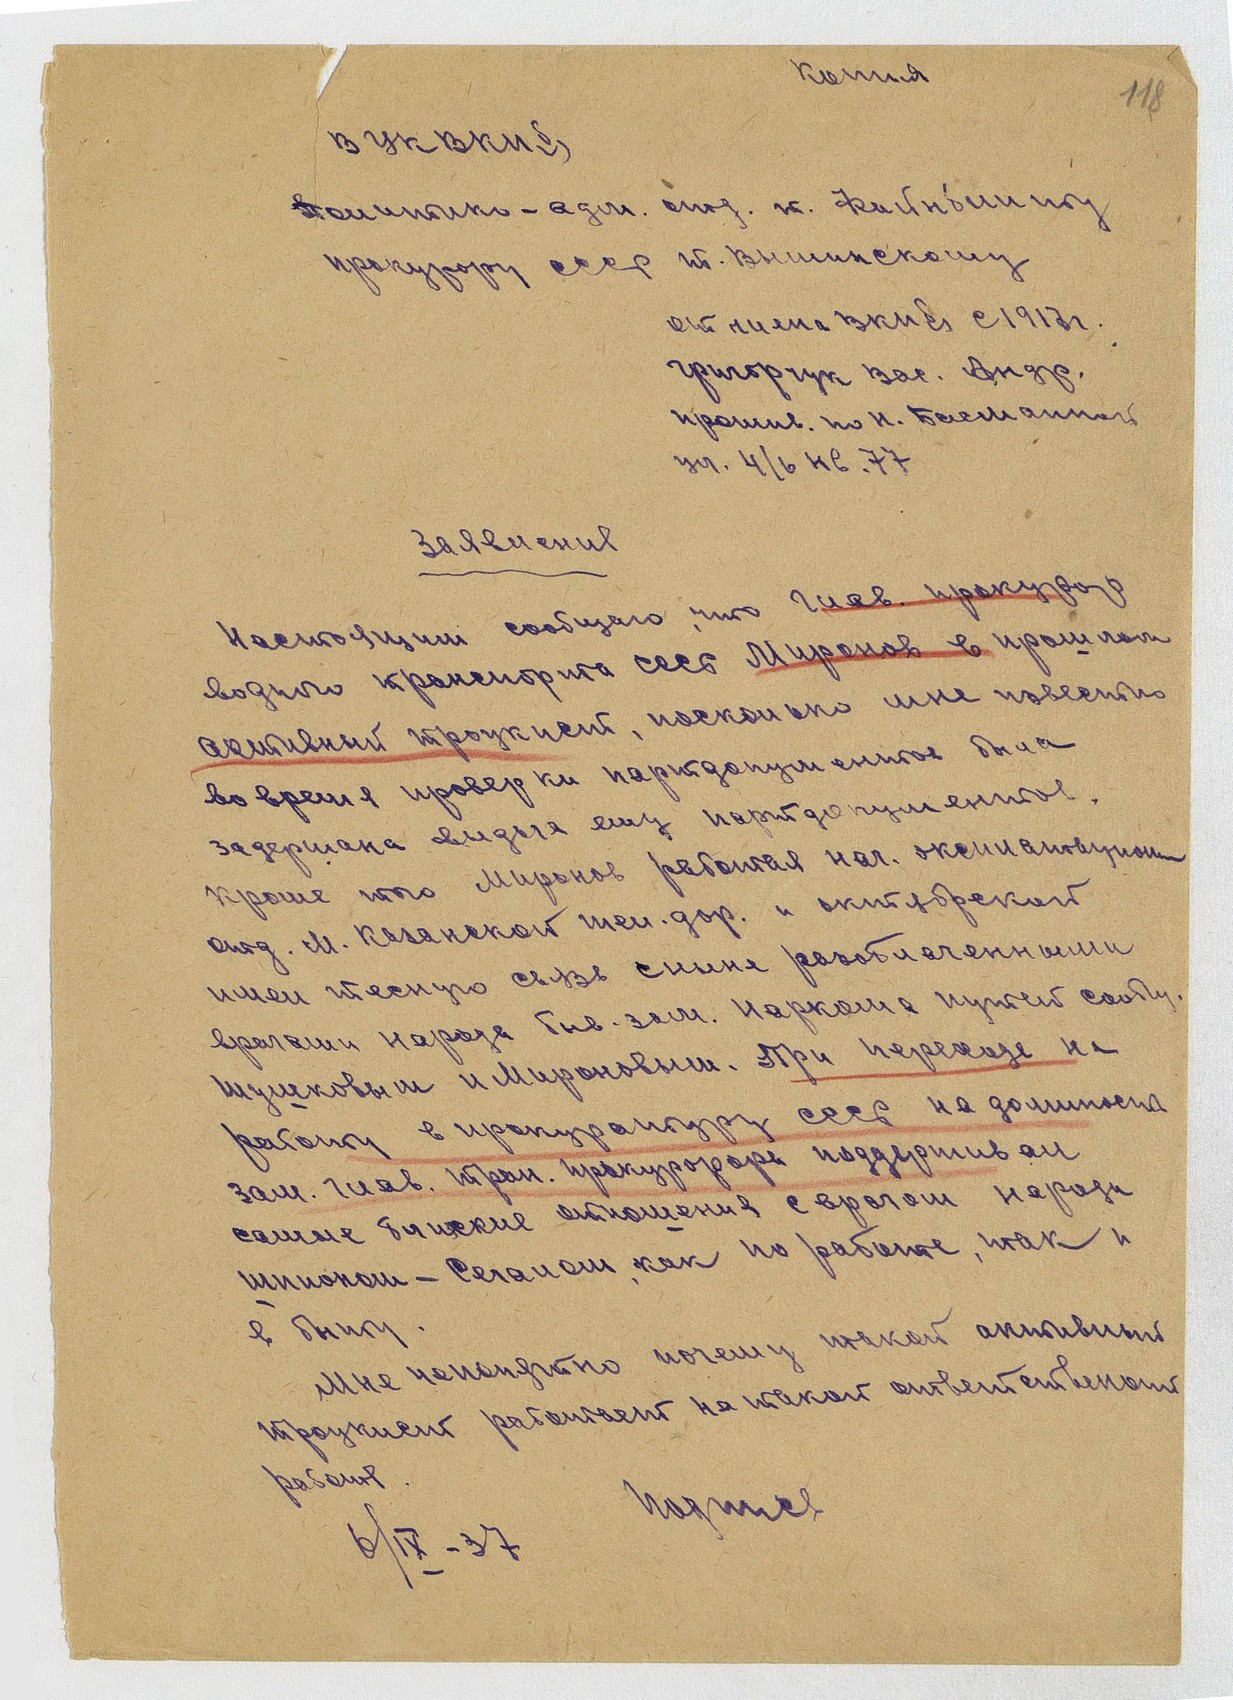 Копия
118
В ЦК ВКП(б)
Политико-адм. отд. т.
прокурору СССР т. Вышинскому
от члена ВКП(б) с 1917г.
Григорчук Вас. Андр.
прожив. по Н. Басманной
ул. 4/6 кв. 77
Заявления
Настоящим сообщаю, что глав. прокурор
водного транспорта СССР Миронов в прошлом
активный троцкист, поскольно мне
во время проверки партдокументов была
задержана выдача ему партдокументов.
Кроме того Миронов работая нач. эксплоатационн
отд. М. Казанской жел. дор. и октябрской
имел тесную связь с ныне разоблаченными
врагами народа быв. зам. Наркома путей сообщ.
Шушковым и Мироновым. При переходе на
работу в прокуратуру СССР на должность
зам. глав. тран. прокуророра поддерживал
самые близкие отношения с врагом народа
шпионом – Сегалом, как по работе, так и
в быту.
Мне непонятно почему такой активный
троцкист работает на такой ответственой
работе.
Подпись
6/IX – 37